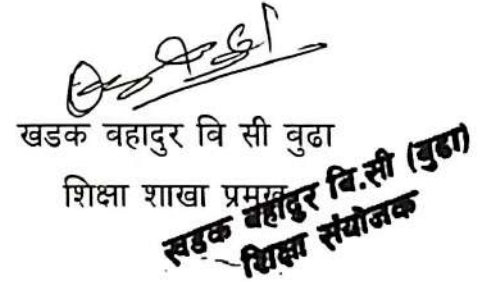 खडक वहादुर वि सी वुढा
शिक्षा शाखा प्रमुख
खडक बहादुर बि.सी (बुढा)
शिक्षा संयोजक